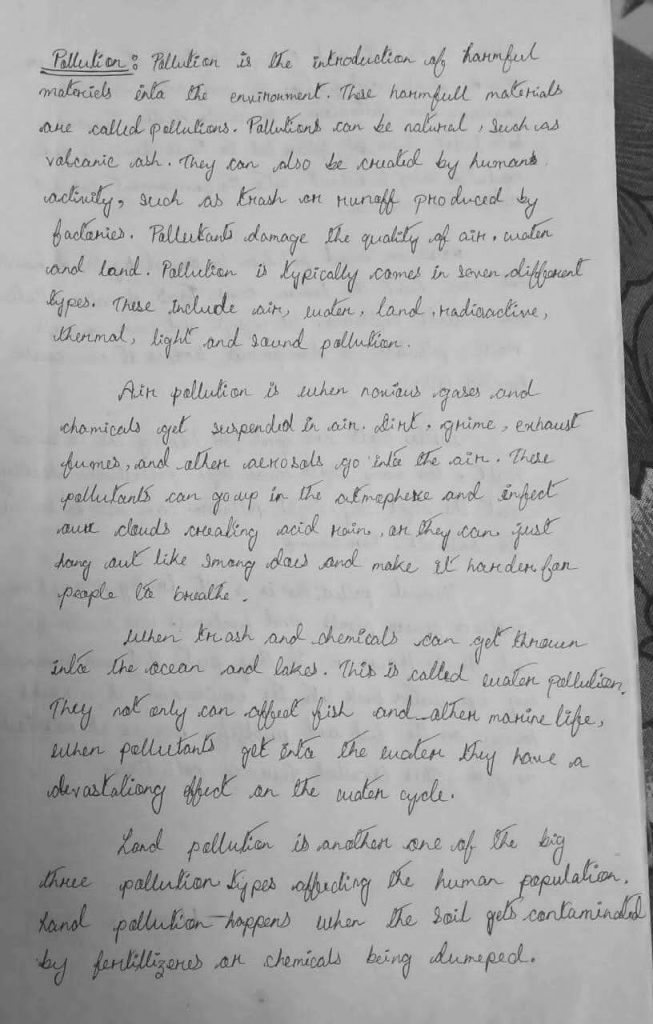 Pollution : Pollution is the introduction of harmful
materiels into the environment. These harmfull materials
are called pollutions. Pollutions can be natural, such as
valcanic ash. They can also be created by humans
activity, such as trash or runoff produced by
factories. Pollutants damage the quality of air, water
and land. Pollution is typically comes in seven different
types. These include air, water, land, radioactive,
thermal, light and sound pollution.
Air pollution is when noxious gases and
chamicals get suspended in air. Dirt, grime, exhaust
fumes, and other aerosals go into the air. These
pollutants can go up in the atmosphere and infect
our clouds creating acid rain, or they can just
hang out like and make it harder for
people to breathe.
When trash and chemicals can get thrown
into the ocean and lakes. This is called water pollution.
They not only can affect fish and other marine life,
when pollutants get into the water they have a
devastationg effect on the water cycle.
Land pollution is another one of the big
three pollution types affecting the human population.
Land pollution happens when the soil gets contaminated
by fertillizeres or chemicals being dumeped.